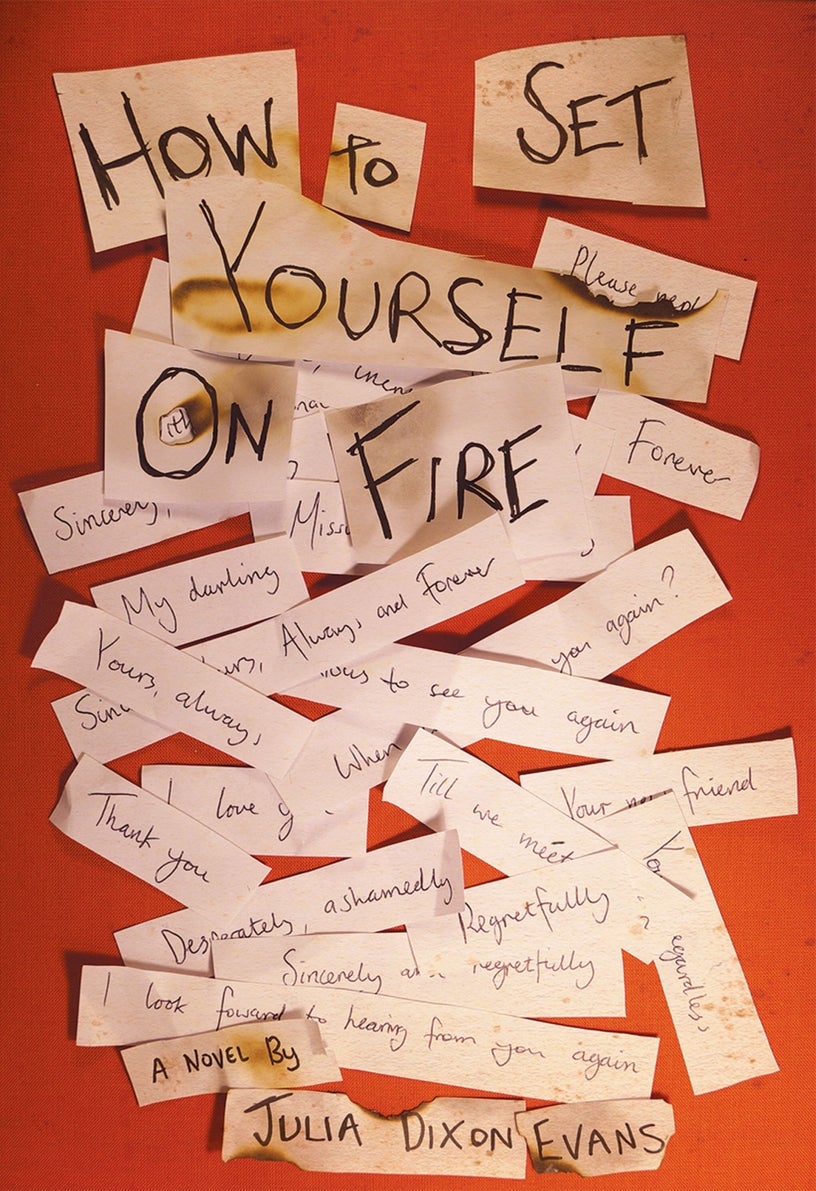 HOW TO SET
YOURSELF
Please
ON FIRE
Forever
Sincerely,
My darling
Always and Forever
you again?
Yours, always,
to see you again
When
I love
Till we meet
Your friend
Thank you
Desperately, ashamedly
Regretfullly
Sincerely
regretfully
egardless,
I look foward to hearing from you again
A NOVEL BY
JULIA DIXON EVANS